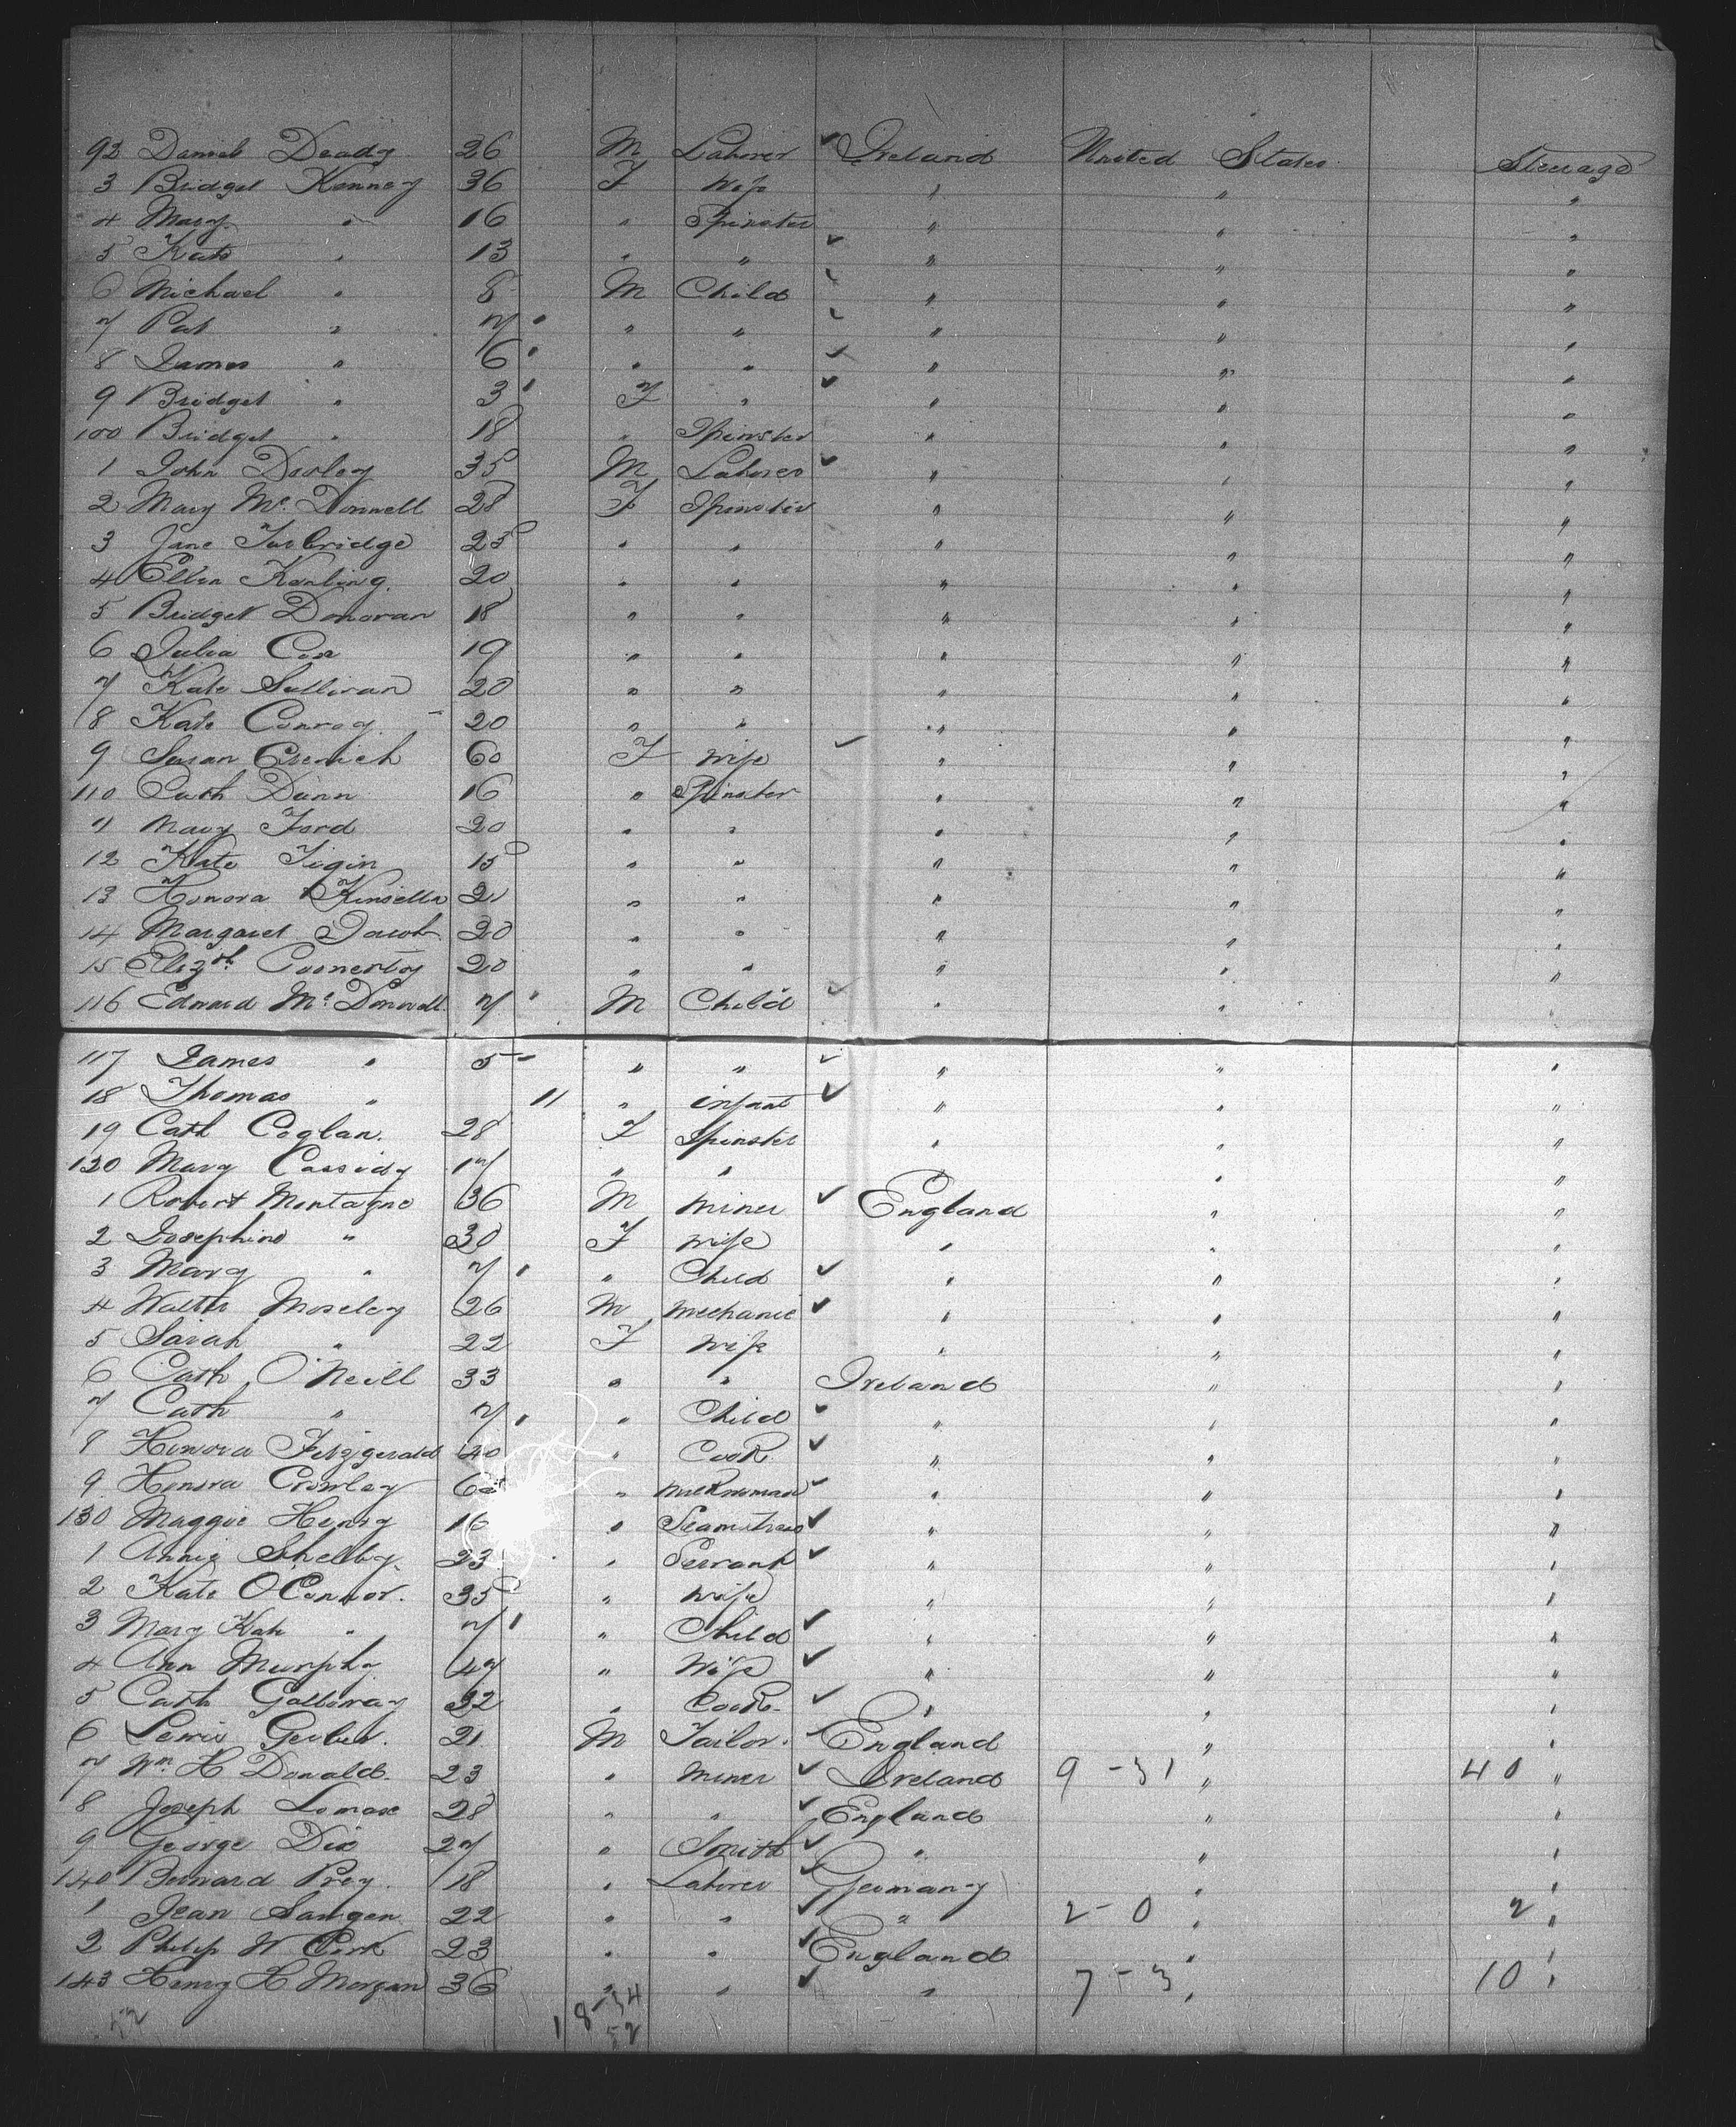 92 Daniel Deady 26 M Laborer ✓ Ireland United States Steerage
3 Bridget Kenney 36 F Wife " " "
4 Mary " 16 " Spinster " " "
5 Kate " 13 " " ✓ " " "
6 Michael " 8 M Child ✓ " " "
7 Pat " 7 " " ✓ " " "
8 James " 6 " " ✓ " " "
9 Bridget " 3 F " ✓ " " "
100 Bridget " 18 " Spinster " " "
1 John Dooley 35 M Laborer ✓ " " "
2 Mary Mc Donnell 28 F Spinster " " "
3 Jane 25 " " " " "
4 Ellen 20 " " " " "
5 Bridget Donovan 18 " " " " "
6 Julia Cox 19 " " " " "
7 Kate Sullivan 20 " " " " "
8 Kate Conroy 20 " " " " "
9 Susan 60 F Wife ✓ " " "
110 Cath Dunn 16 " Spinster " " "
11 Mary Ford 20 " " " " "
12 Kate 15 " " " " "
13 Honora Kinsella 21 " " " " "
14 Margaret 20 " " " " "
15 Elizth 20 " " " " "
116 Edward Mc Donnell 7 M Child ✓ " " "
117 James " 5 " " ✓ " " "
18 Thomas " 11 " infant ✓ " " "
19 Cath Coglan. 28 F Spinster " " "
120 Mary Cassidy 17 " " " "
1 Robert Montague 36 M Miner ✓ England " "
2 Josephine " 30 F Wife " " "
3 Mary " 7 " Child ✓ " " "
4 Walter Moseley 26 M Mechanic ✓ " " "
5 Sarah " 22 F Wife " " "
6 Cath O'Neill 33 " " Ireland " "
7 Cath " 7 " Child ✓ " " "
8 Honora Fitzgerald 40 " Cook ✓ " " "
9 Honora Crowley " ✓ " " "
130 Maggie Henry 16 " Seamstress ✓ " " "
1 Annie Shelby 23 " Servant ✓ " " "
2 Kate O'Connor. 35 " Wife " " "
3 Mary Kate " 7 " Child ✓ " " "
4 Ann Murphy 47 " Wife ✓ " " "
5 Cath Galloway 22 " Cook ✓ " " "
6 Lewis 21 M Tailor. ✓ England " "
7 Wm. H Donald. 23 " Miner ✓ Ireland 9-31 " 40 "
8 Joseph Lomax 28 " " ✓ England " "
9 George Dix 27 " Smith ✓ " " "
140 Bernard Prey. 18 " Laborer ✓ Germany " "
1 Jean 22 " " ✓ " 2-0 " 2 "
2 Philip W 23 " " ✓ England " "
143 Henry H Morgan 36 " " ✓ " 7-3 " 10 "
52 1 8-34
52